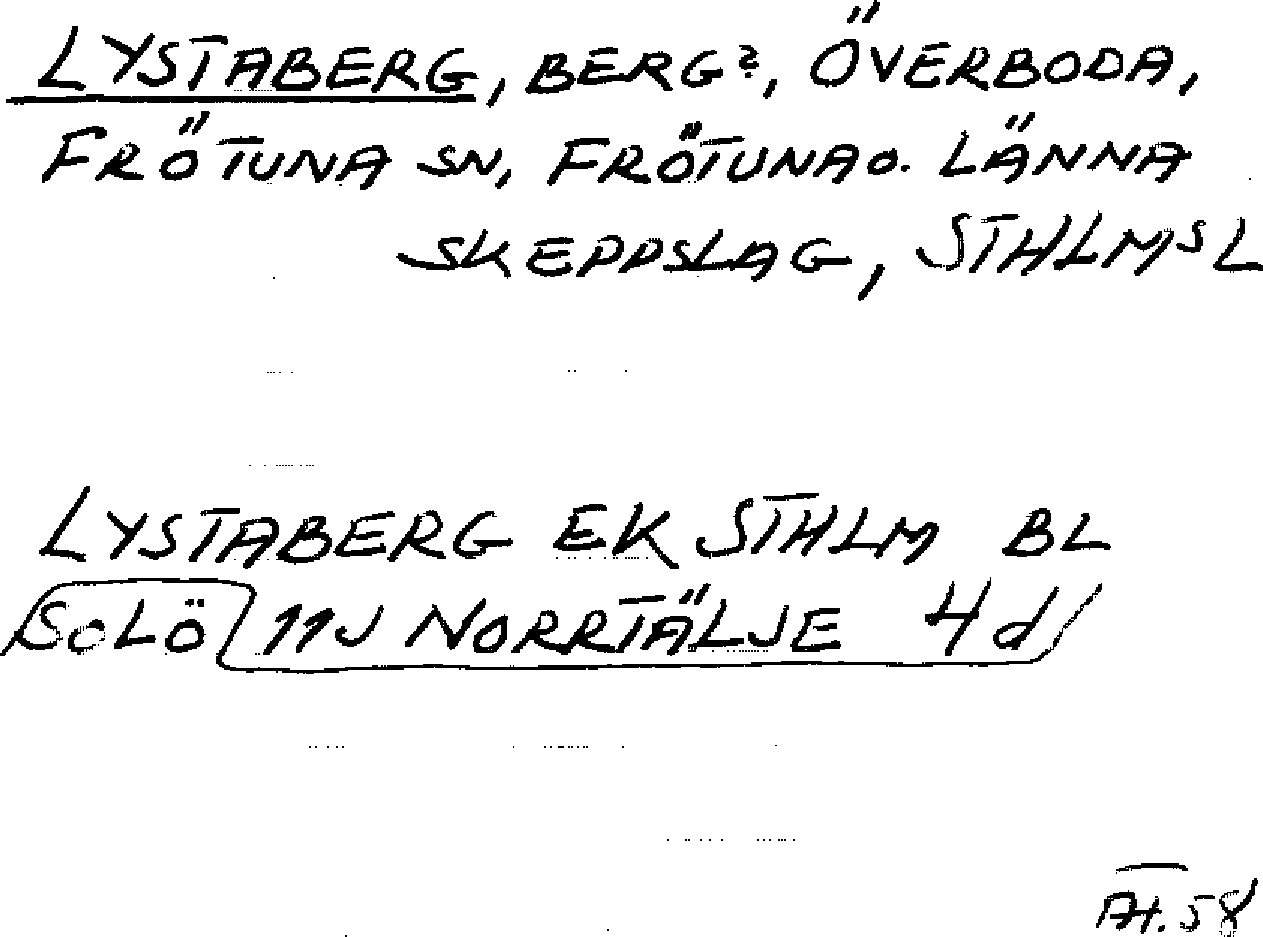 LYSTABERG, BERG?, ÖVERBODA,
FRÖTUNA SN, FRÖTUNA O. LÄNNA
SKEPPSLAG, STHLMS L
LYSTABERG EK STHLM BL
SOLÖ 11J NORRTÄLJE 4d
AH.58